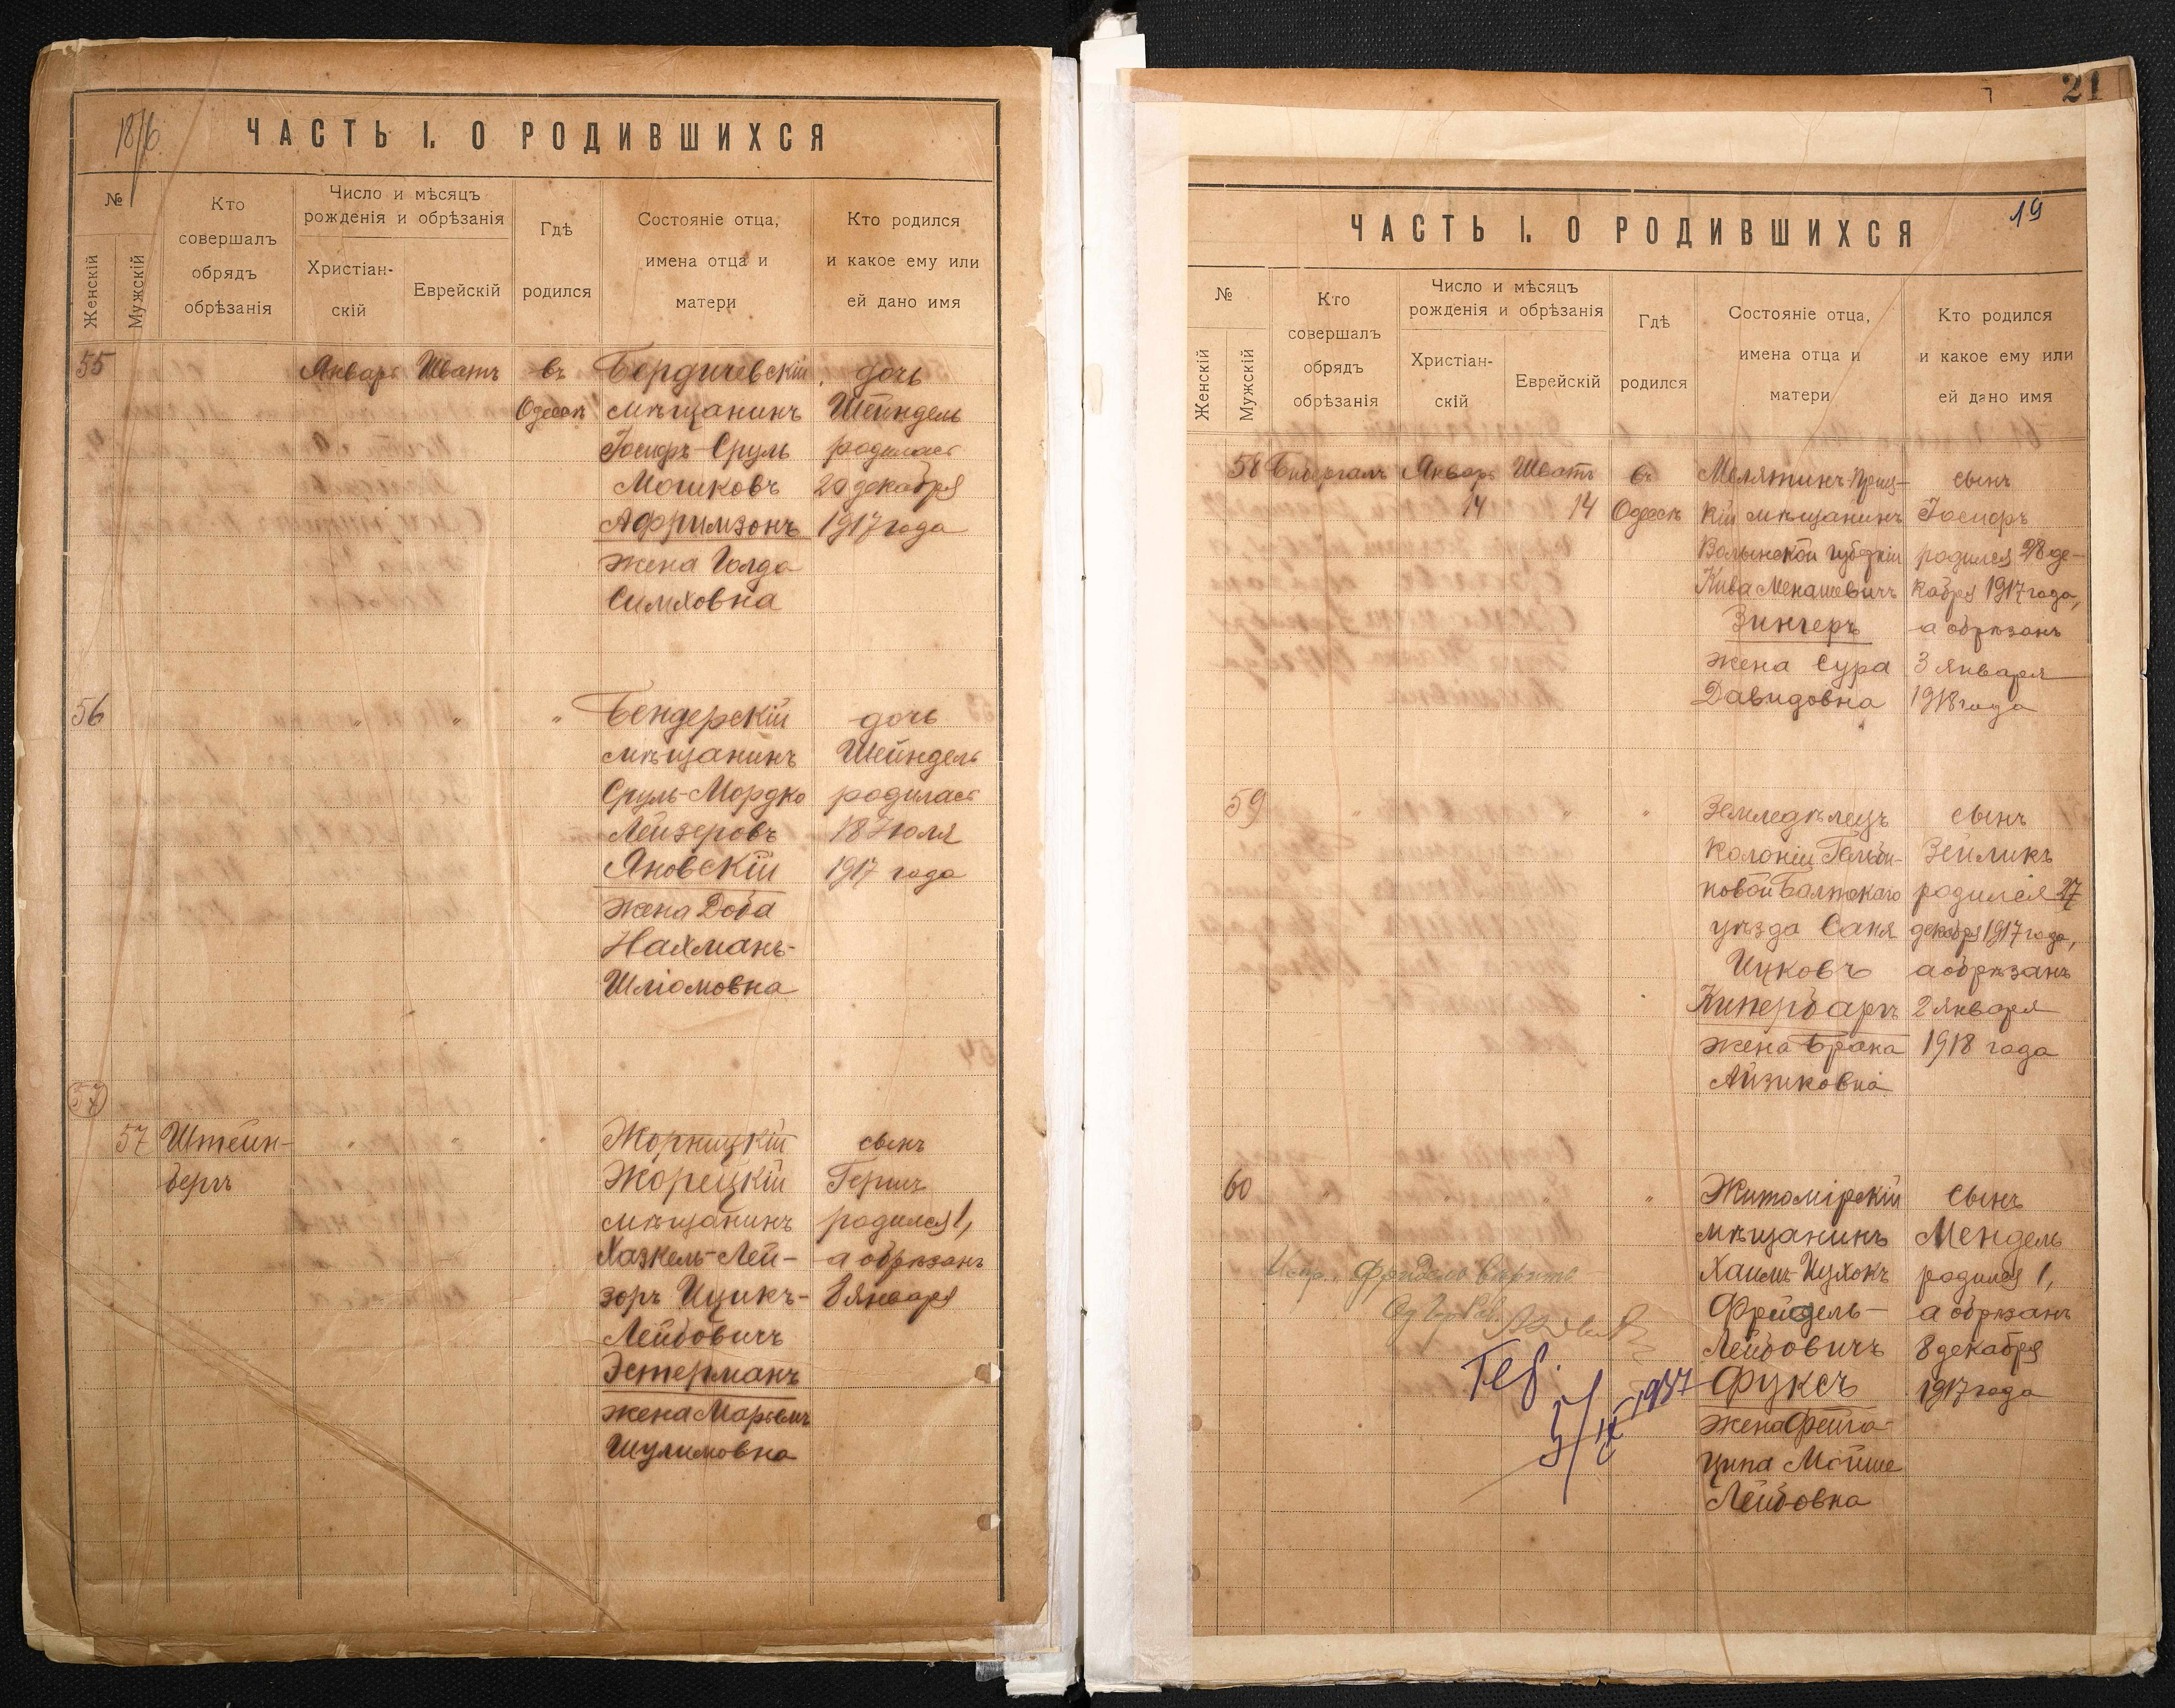 18/6
ЧАСТЬ I. О РОДИВШИХСЯ
№
Женскій
Мужскій
Кто
совершалъ
обрядъ
обрѣзанія
Число и мѣсяцъ
рожденія и обрѣзанія
Христіан-
скій
Еврейскій
Гдѣ
родился
Состояніе отца,
имена отца и
матери
Кто родился
и какое ему или
ей дано имя
55 Январь Шватъ въ Бердичевскій дочь
Одессѣ мѣщанинъ Шейндель
Іосифъ-Сруль родилась
Мошковъ 20 декабря
Афримзонъ 1917 года
жена Голда
Симховна
56 " " " Бендерскій дочь
мѣщанинъ Шейндель
Сруль-Мордко родилась
Лейзеровъ 18 Іюля
Яновскій 1917 года
жена Доба
Нахманъ-
Шліомовна
57
57 Штейн- " " " Жорницкій сынъ
бергъ Жорецкій Гершъ
мѣщанинъ родился 1,
Хаскель-Лей- а обрѣзанъ
зоръ Ицикъ- 8 января
Лейбовичъ
Эстерманъ
жена Маріемъ
Шулимовна
21
19
ЧАСТЬ I. О РОДИВШИХСЯ
№
Женскій
Мужскій
Кто
совершалъ
обрядъ
обрѣзанія
Число и мѣсяцъ
рожденія и обрѣзанія
Христіан-
скій
Еврейскій
Гдѣ
родился
Состояніе отца,
имена отца и
матери
Кто родился
и какое ему или
ей дано имя
58 Январь Шватъ въ сынъ
14 14 Одессѣ кій мѣщанинъ Іосифъ
Волынской губерніи родился 28 де-
Кива Менашевичъ кабря 1917 года,
Зингеръ а обрѣзанъ
жена Сура 3 января
Давидовна 1918 года
59 " " " Земледѣлецъ сынъ
колоніи Зейликъ
новой Балтскаго родился 27
уѣзда Саня декабря 1917 года,
Ицковъ а обрѣзанъ
Кипербаргъ 2 января
жена Брана 1918 года
Айзиковна
60 " " " " Житомірскій сынъ
мѣщанинъ Мендель
Хаимъ-Ицхокъ родился 1,
Фрейдель- а обрѣзанъ
Лейбовичъ 8 декабря
1937 Фуксъ 1917 года
жена Фейга-
Ципа Мойше
Лейбовна